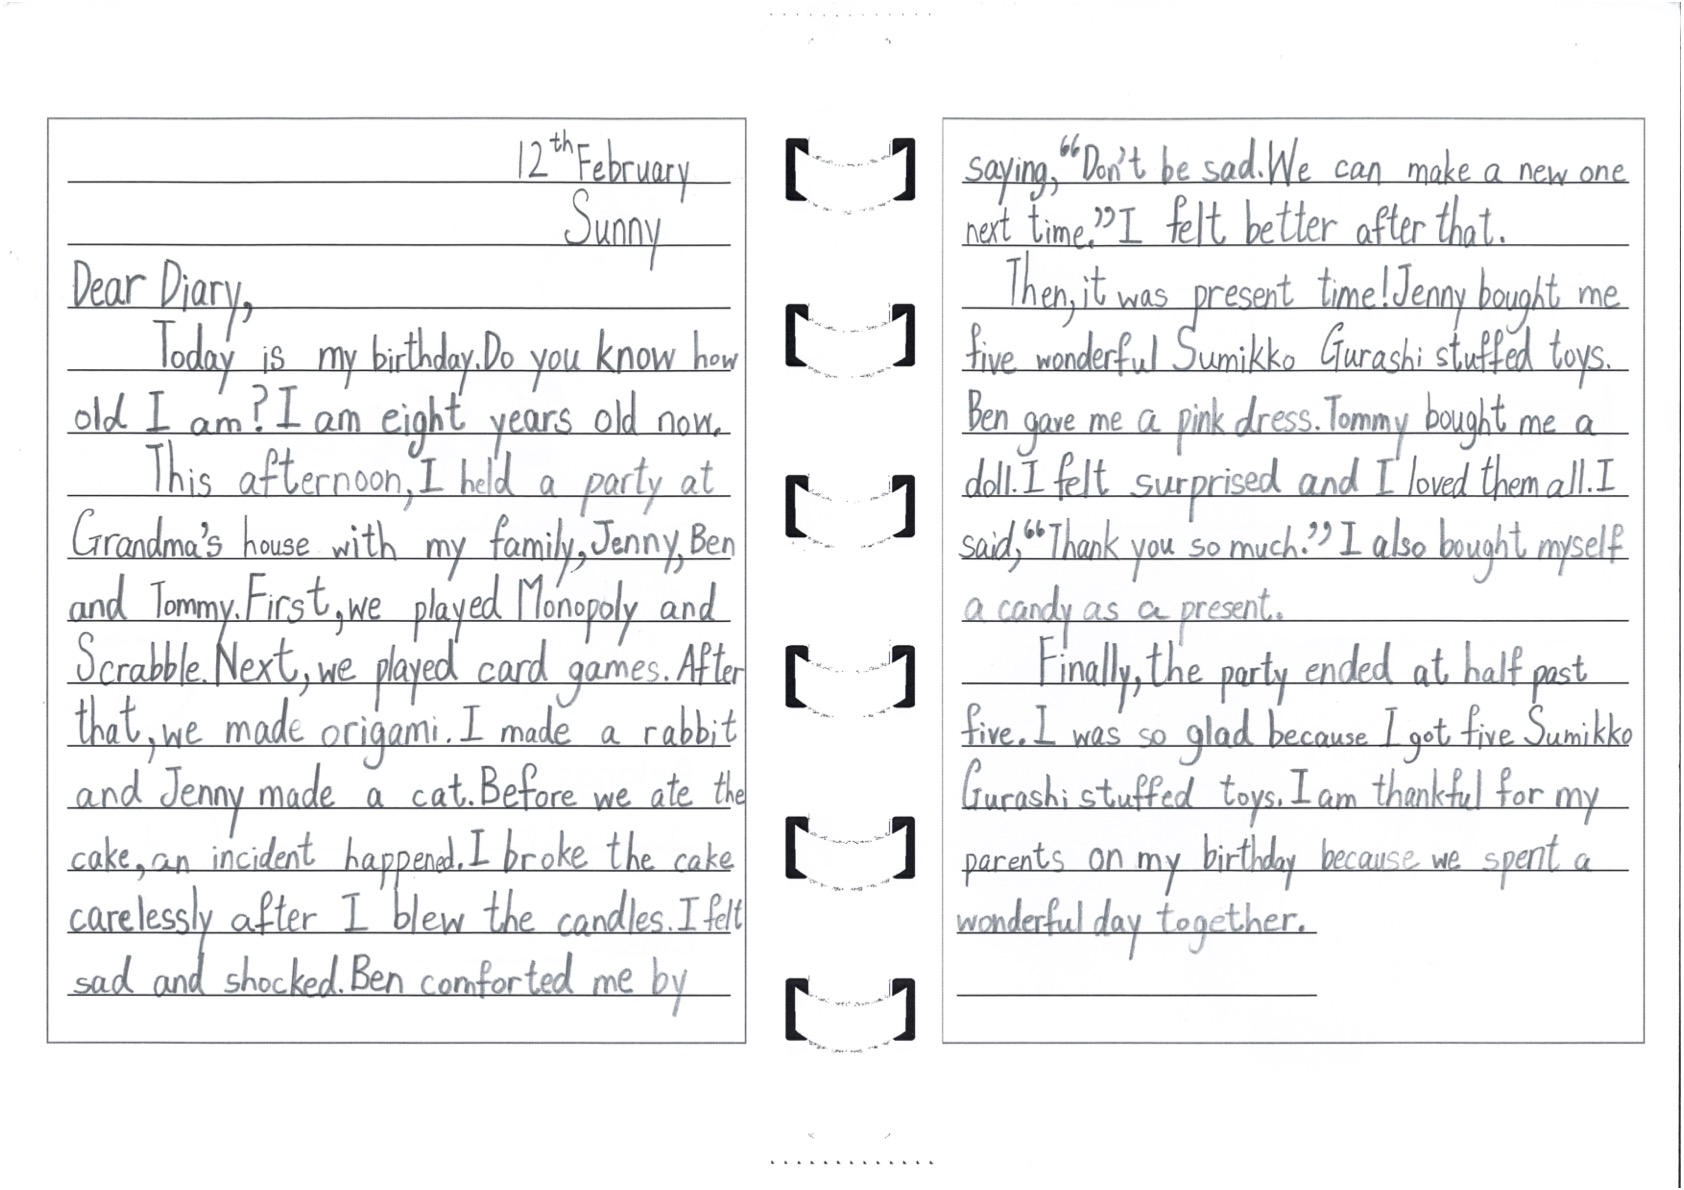 12th February
Sunny
Dear Diary,
Today is my birthday. Do you know how
old I am? I am eight years old now.
This afternoon, I held a party at
Grandma's house with my family, Jenny, Ben
and Tommy. First, we played Monopoly and
Scrabble. Next, we played card games. After
that, we made origami. I made a rabbit
and Jenny made a cat. Before we ate the
cake, an incident happened. I broke the cake
carelessly after I blew the candles. I felt
sad and shocked. Ben comforted me by
saying, “Don't be sad. We can make a new one
next time.” I felt better after that.
Then, it was present time! Jenny bought me
five wonderful Sumikko Gurashi stuffed toys.
Ben gave me a pink dress. Tommy bought me a
doll. I felt surprised and I loved them all. I
said, “Thank you so much.” I also bought myself
a candy as a present.
Finally, the party ended at half past
five. I was so glad because I got five Sumikko
Gurashi stuffed toys. I am thankful for my
parents on my birthday because we spent a
wonderful day together.